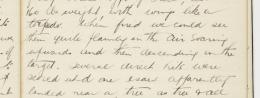 160 lbs weight, with wings like a
torpedo. When fired we could see
them quite plainly in the air soaring
upwards and then descending on the
target. Several direct hits were
scored and one I saw apparently
landed near a tree as the tree